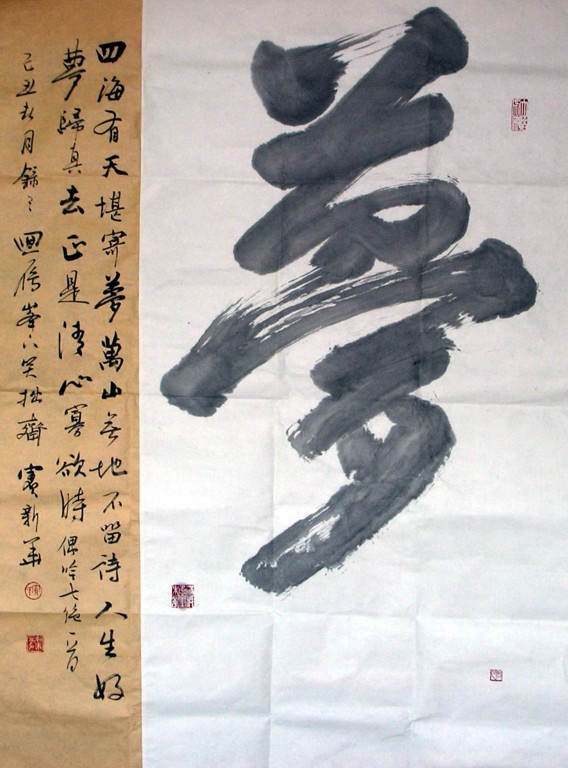 夢
四海有天堪寄夢萬山無地不留詩人生好
夢歸真去正是清心寡欲時偶吟七絕一首
己丑秋月錄迴雁峯下笑拙齋新華